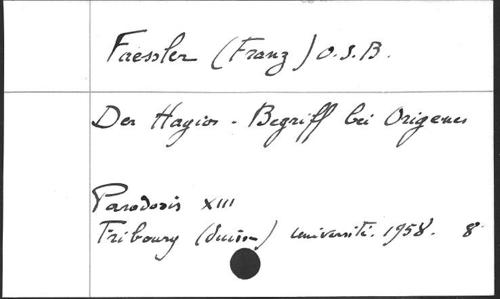 Faessler (Franz) O.S.B.
Der Hagios - Begriff bei Origenes
Paradosis XIII
Fribourg (Suisse) Université. 1958. 8